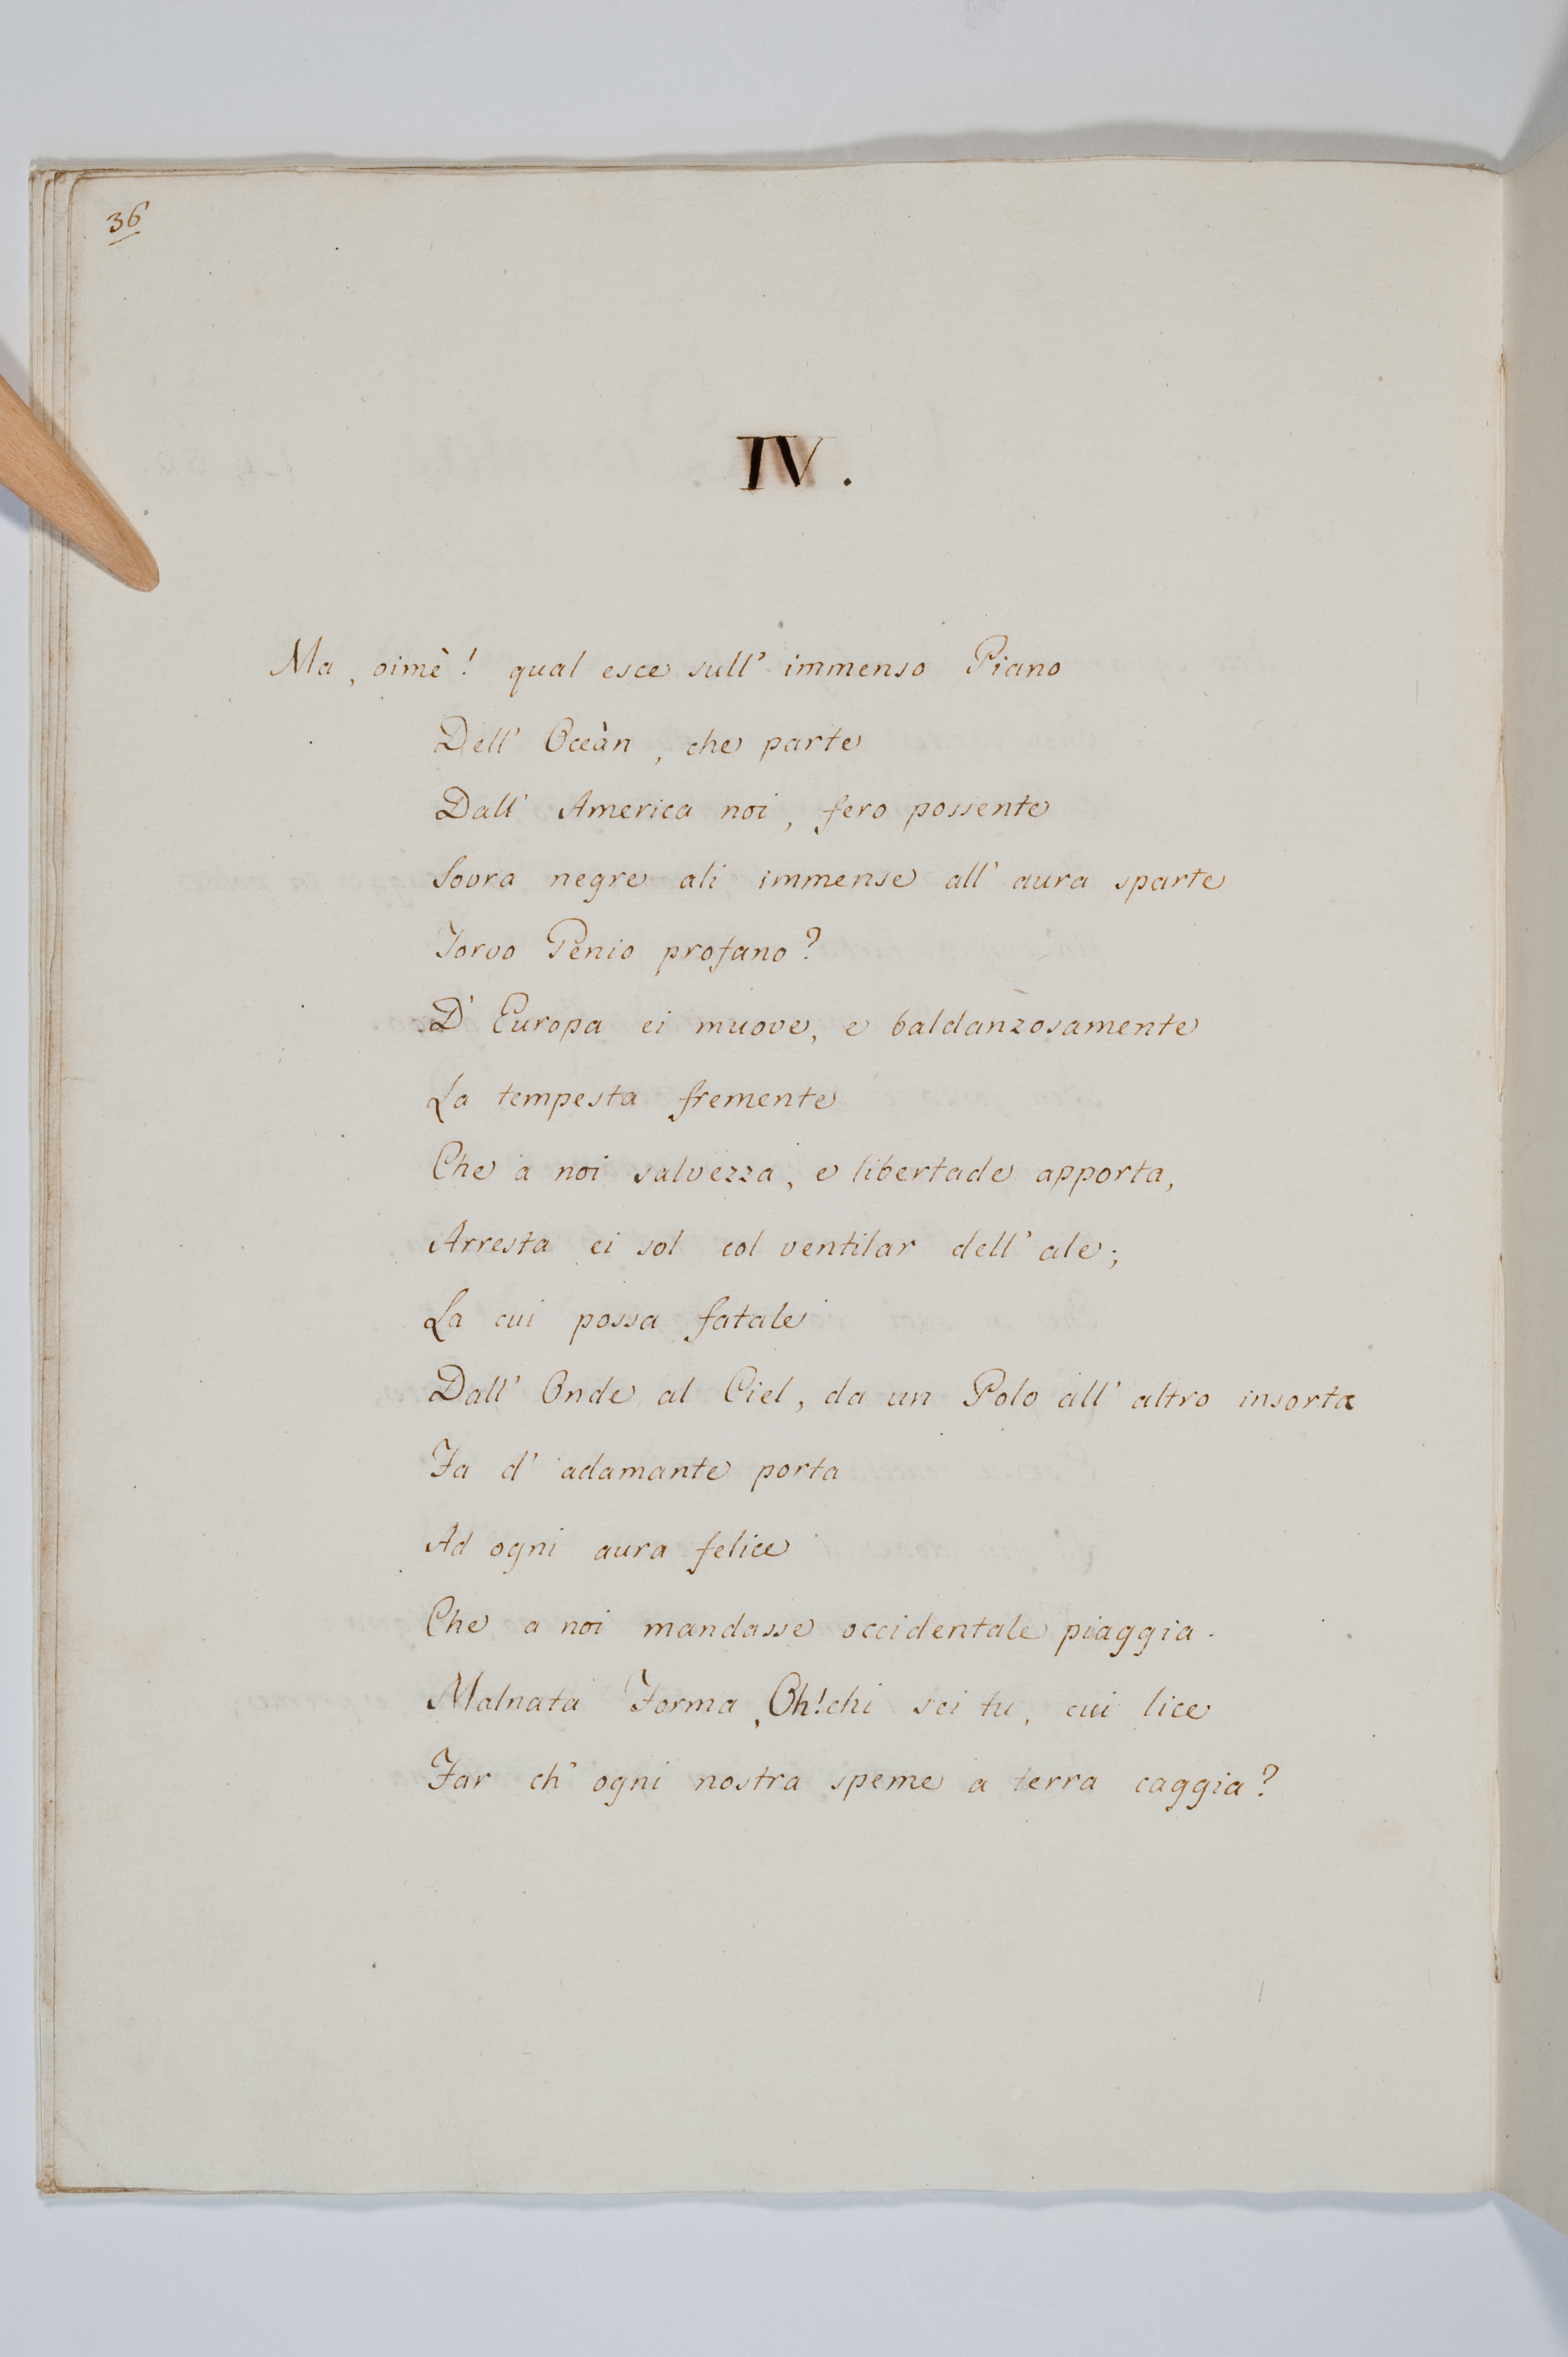 36
IV.
Ma, oimè! qual esce sull' immenso Piano
Dell' Oceàn, che parte
Dall' America noi, fero possente
Sovra negre ali immense all' aura sparte
Torvo Genio profano?
D' Europa ei muove, e baldanzosamente
La tempesta fremente
Che a noi salvezza, e libertade apporta,
Arresta ei sol col ventilar dell' ale;
La cui possa fatale
Dall' Onde al Ciel, da un Polo all' altro insorta
Fa d' adamante porta
Ad ogni aura felice
Che a noi mandasse occidentale piaggia.
Malnata Forma, Oh! chi sei tu, cui lice
Far ch' ogni nostra speme a terra caggia?